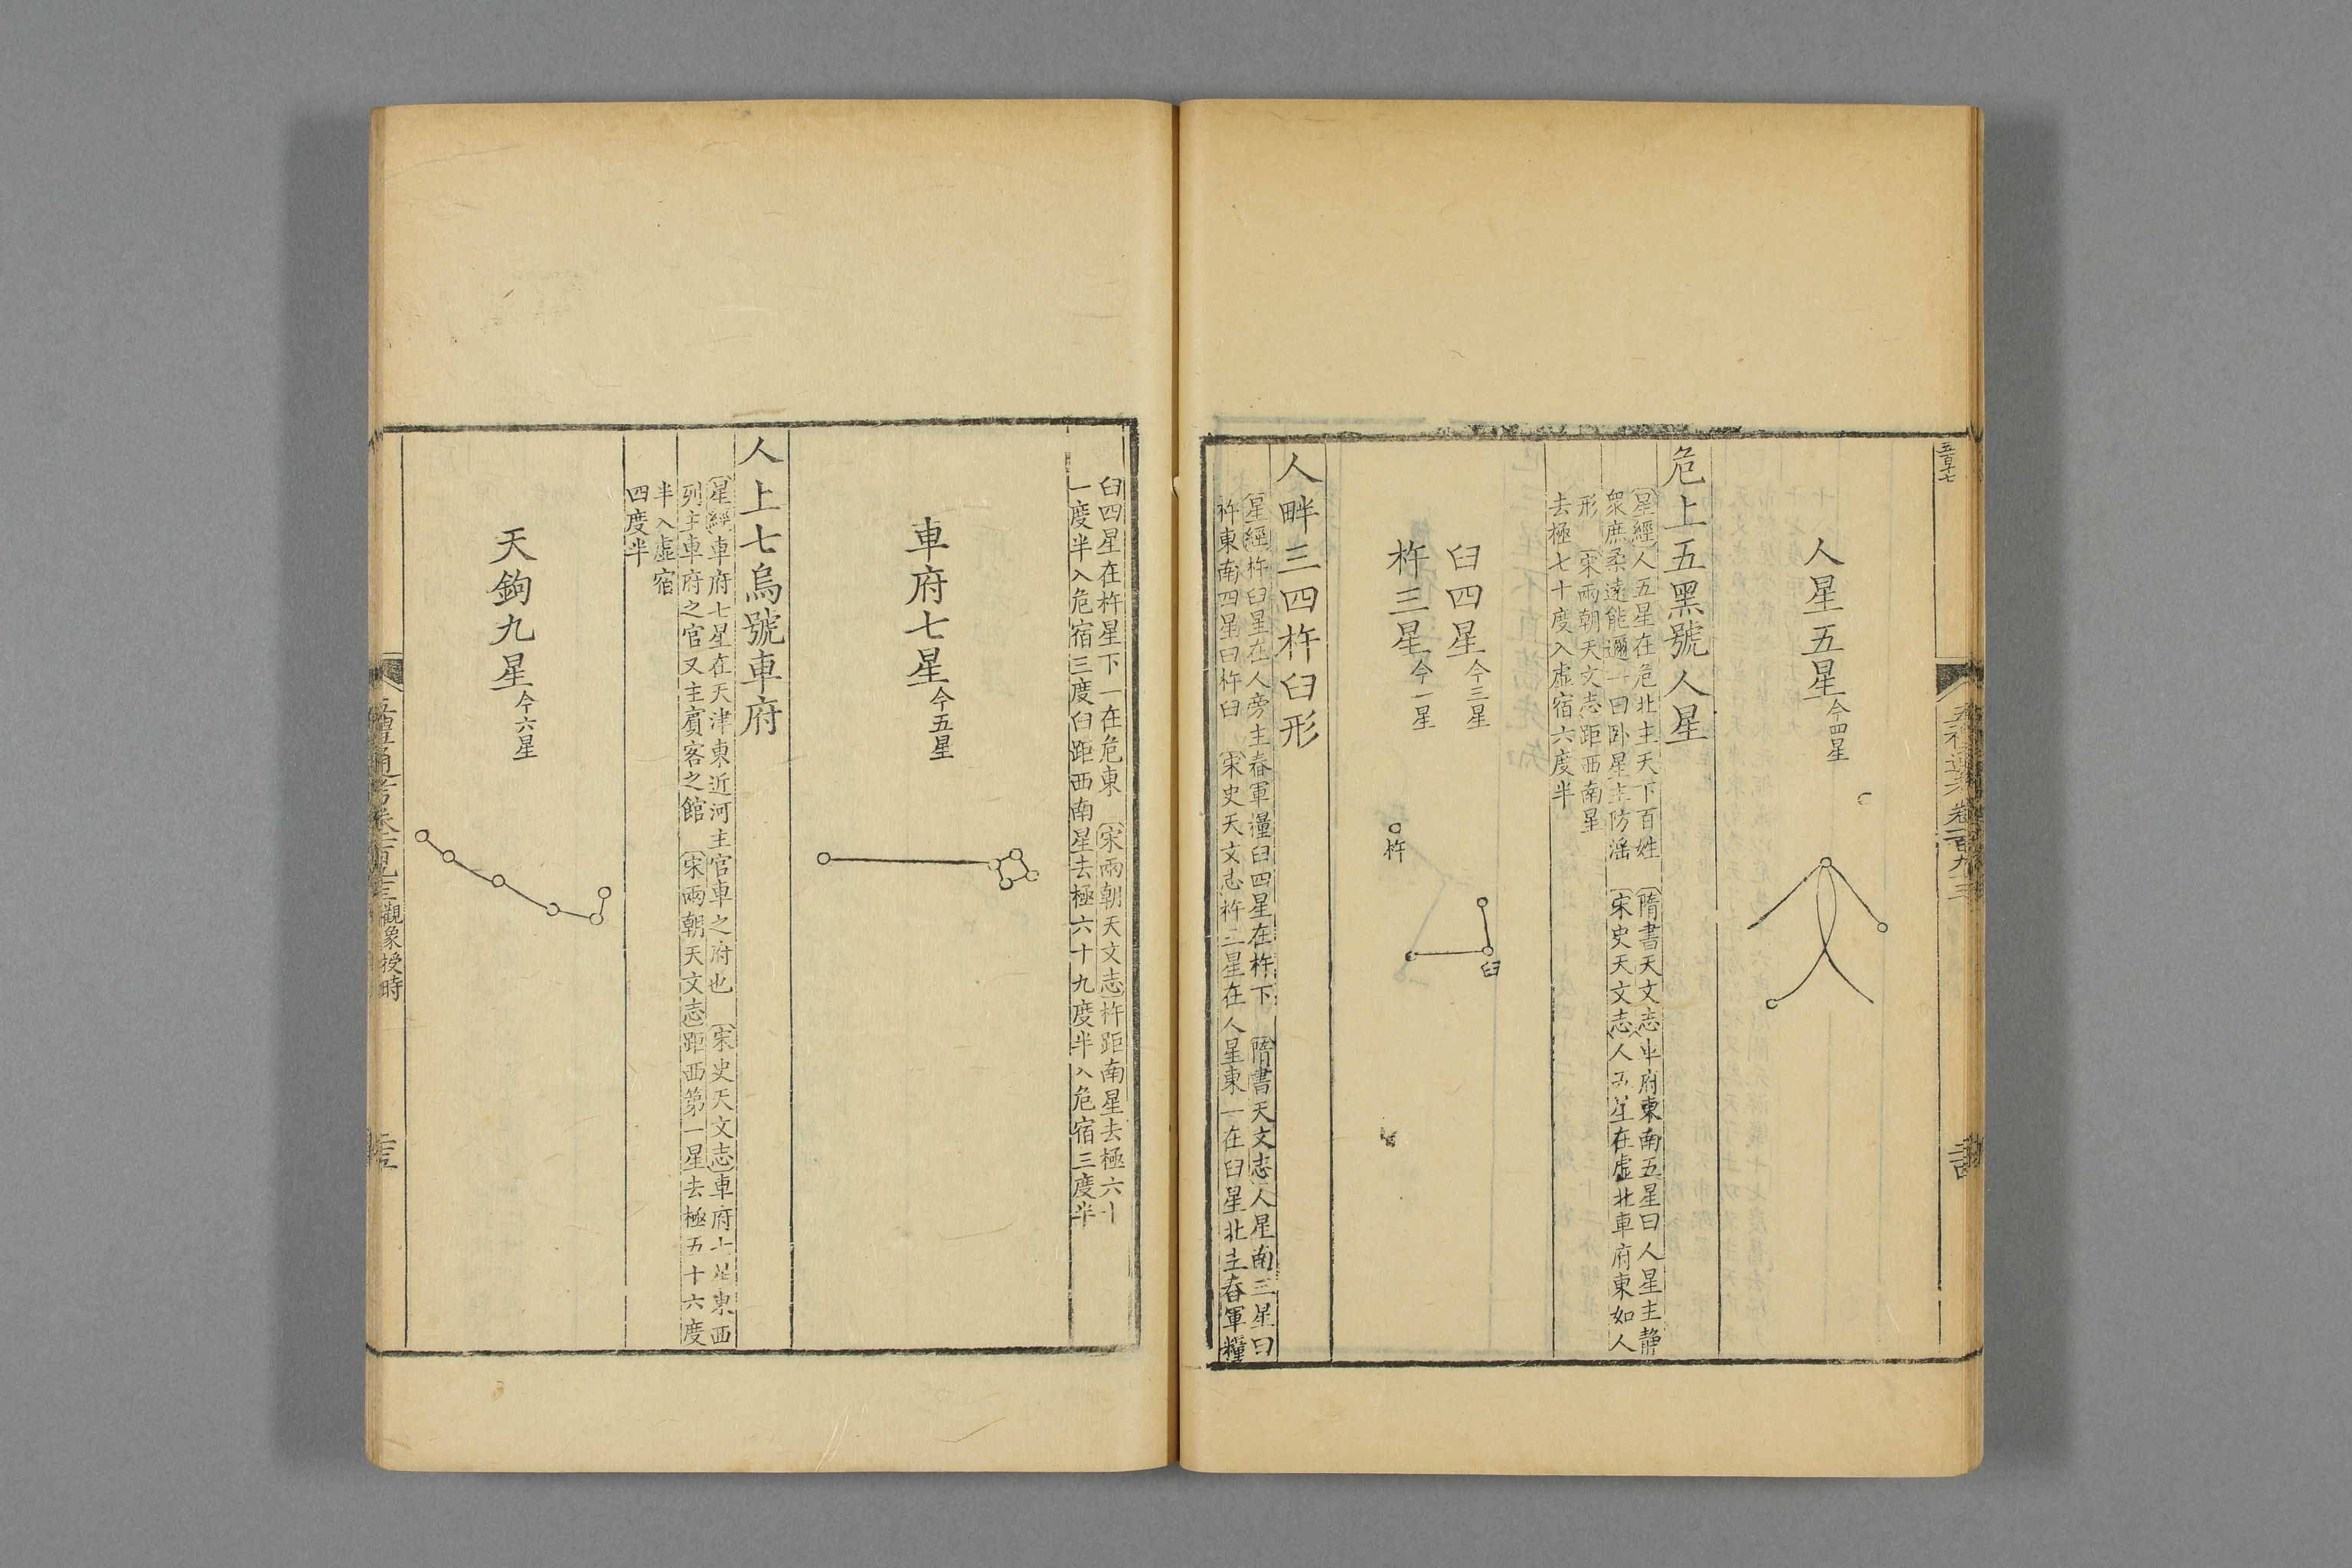 五百十七
五禮通考卷一百九十三
人星五星今四星
危上五黑號人星
星經人五星在危北主天下百姓 隋書天文志車府東南五星曰人星主靜
衆庶柔遠能邇一曰卧星主防淫 宋史天文志人五星在虛北車府東如人
形 宋兩朝天文志距西南星
去極七十度入虛宿六度半
臼四星今三星
杵三星今一星
杵
臼
人畔三四杵臼形
星經杵臼星在人旁主舂軍糧臼四星在杵下 隋書天文志人星南三星曰
杵東南四星曰杵臼 宋史天文志杵三星在人星東一在臼星北主舂軍糧
臼四星在杵星下一在危東 宋兩朝天文志杵距南星去極六十
一度半入危宿三度臼距西南星去極六十九度半入危宿三度半
車府七星今五星
人上七烏號車府
星經車府七星在天津東近河主官車之府也 宋史天文志車府七星東西
列主車府之官又主賓客之館 宋兩朝天文志距西第一星去極五十六度
半入虛宿
四度半
天鉤九星今六星
五禮通考卷一百九十三觀象授時